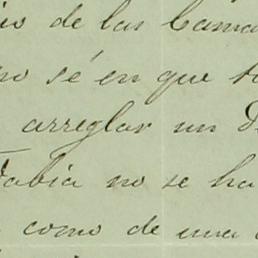 de las Cama
no sé en que
arreglar un D
no se ha
como de una